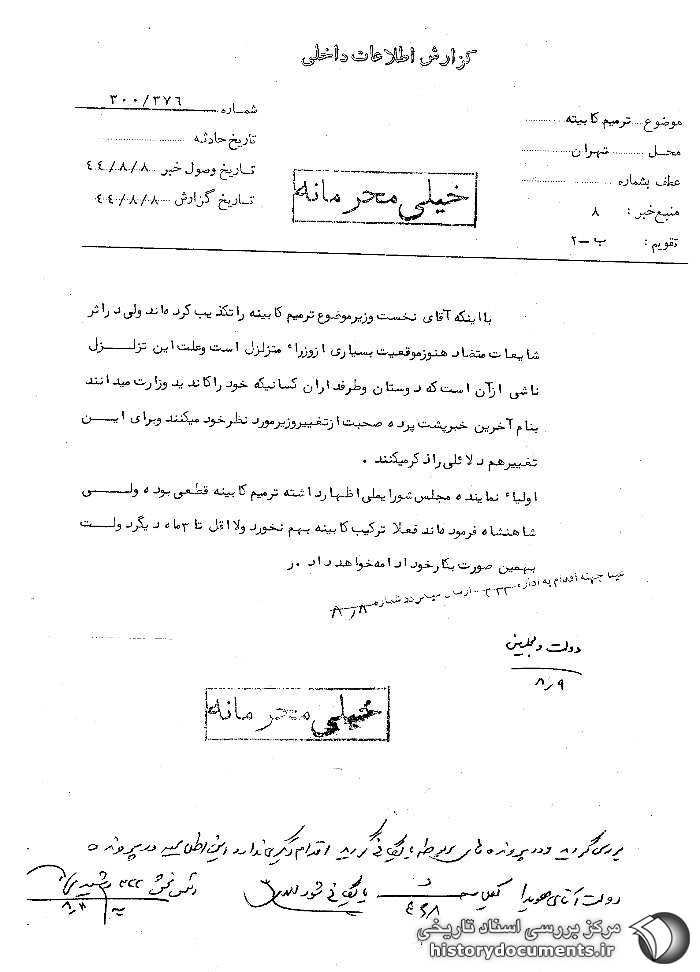 گزارش اطلاعات داخلی
موضوع ترمیم کابینه
محل تهران
عطف بشماره
منبع خبر : ۸
تقویم : ب-۲
شماره ۳۰۰/۳۷۶
تاریخ حادثه
تاریخ وصول خبر ۴۴/۸/۸
تاریخ گزارش ۴۴/۸/۸
خیلی محرمانه
با اینکه آقای نخست وزیر موضوع ترمیم کابینه را تکذیب کرده اند ولی در اثر
شایعات متضاد هنوز موقعیت بسیاری از وزراء متزلزل است وعلت این تزلزل
ناشی ازآن است که دوستان وطرفداران کسانیکه خود راکاندید وزارت میدانند
بنام آخرین خبر پشت پرده صحبت ازتغییر وزیر مورد نظر خود میکنند وبرای این
تغییرهم دلائلی راذکر میکنند .
اولیاء نماینده مجلس شورایملی اظهار داشته ترمیم کابینه قطعی بوده ولی
شاهنشاه فرموده اند فعلا ترکیب کابینه بهم نخورد ولااقل تا ۳ ماه دیگر دولت
بهمین صورت بکار خود ادامه خواهد داد . ر
عینا جهت اقدام به اداره ۳۲۲ ارسال شماره ۸/۸
دولت و مجلسین
۸/۹
خیلی محرمانه
بررسی گردید و در پرونده های مربوطه بایگانی گردید اقدام دیگری ندارد این اطلاعیه در پرونده
دولت آقای هویدا بایگانی شود
مرکز بررسی اسناد تاریخی
historydocuments.ir